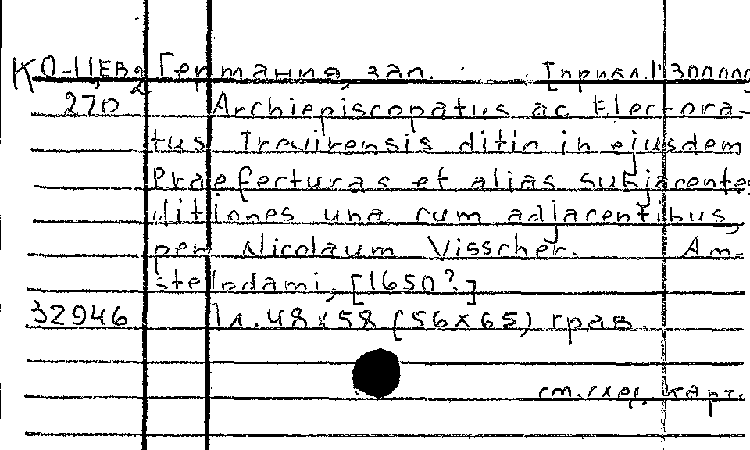 КО-ЦЕВ2 Германия, зап. [Прибл.1:300000]
270 Archiepiscopatus ac Electora-
tus Trevirensis ditio in ejusdem
Praefecturas et alias subjacentes
ditiones una cum adjacentibus,
per Nicolaum Visscher. Am-
stelodami, [1650?]
32946 1 л. 48x58 (56x65) грав.
см. след. карт.